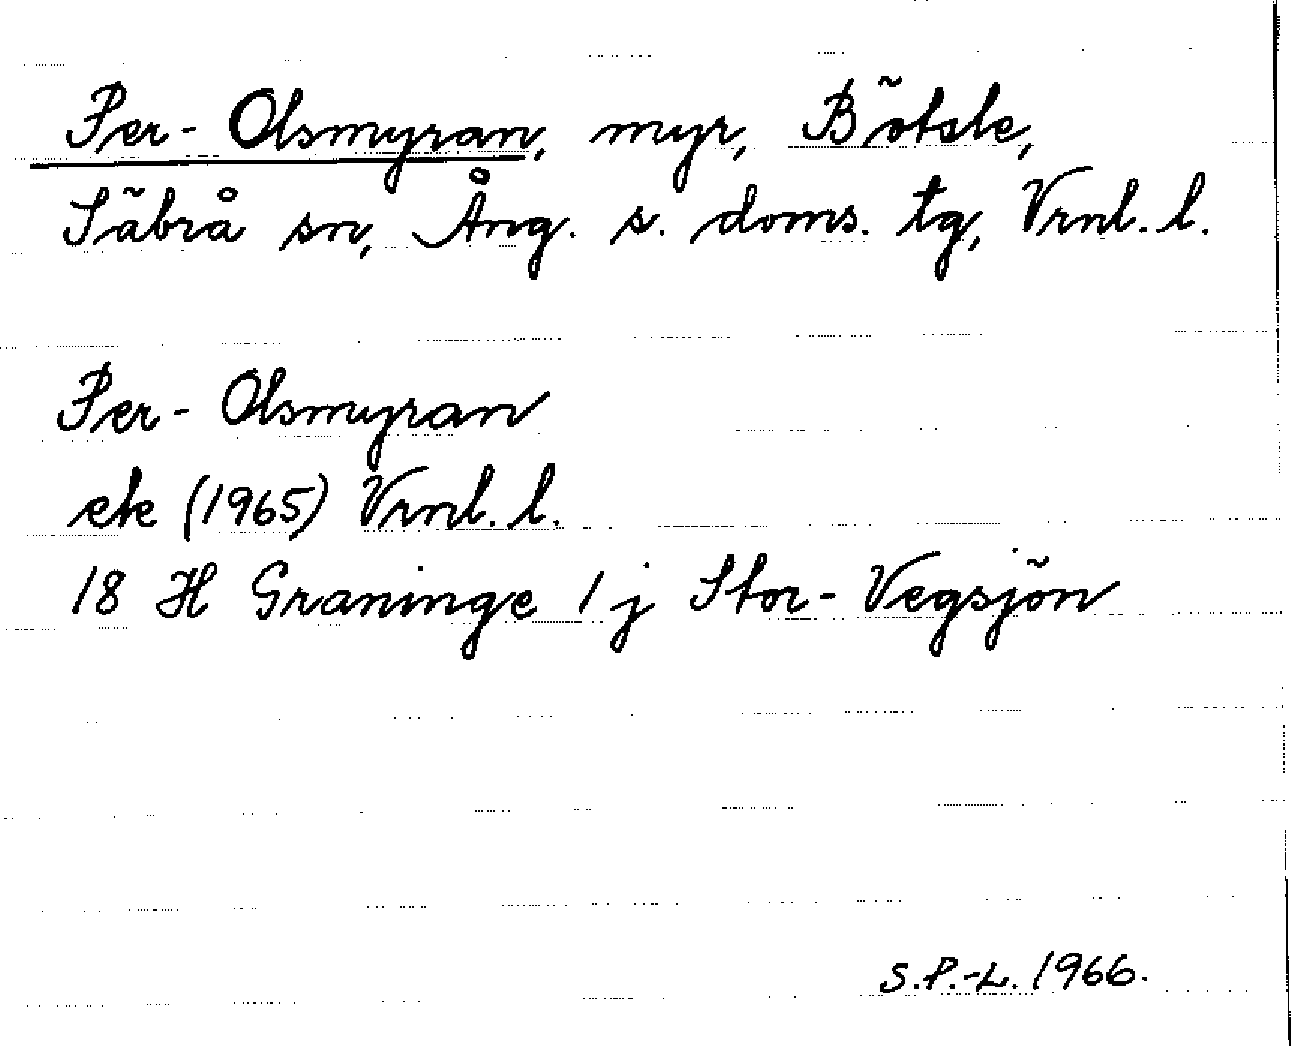 Per-Olsmyran, myr, Bötsle,
Säbrå sn, Ång. s. doms. tg, Vrnl. l.
Per-Olsmyran
ek (1965) Vrnl. l.
18 H Graninge 1 j Stor-Vegsjön
S.P.-L. 1966.